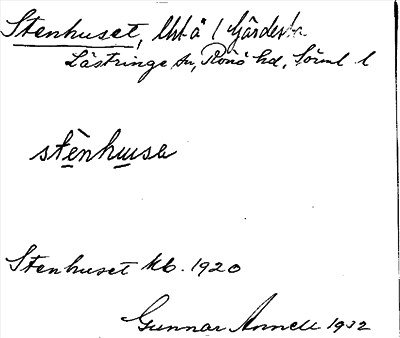 Stenhuset, lht å / Gärdesta
Lästringe sn, Rönö hd, Sörml l
stènhuusə
Stenhuset Kb. 1920
Gunnar Annell 1932